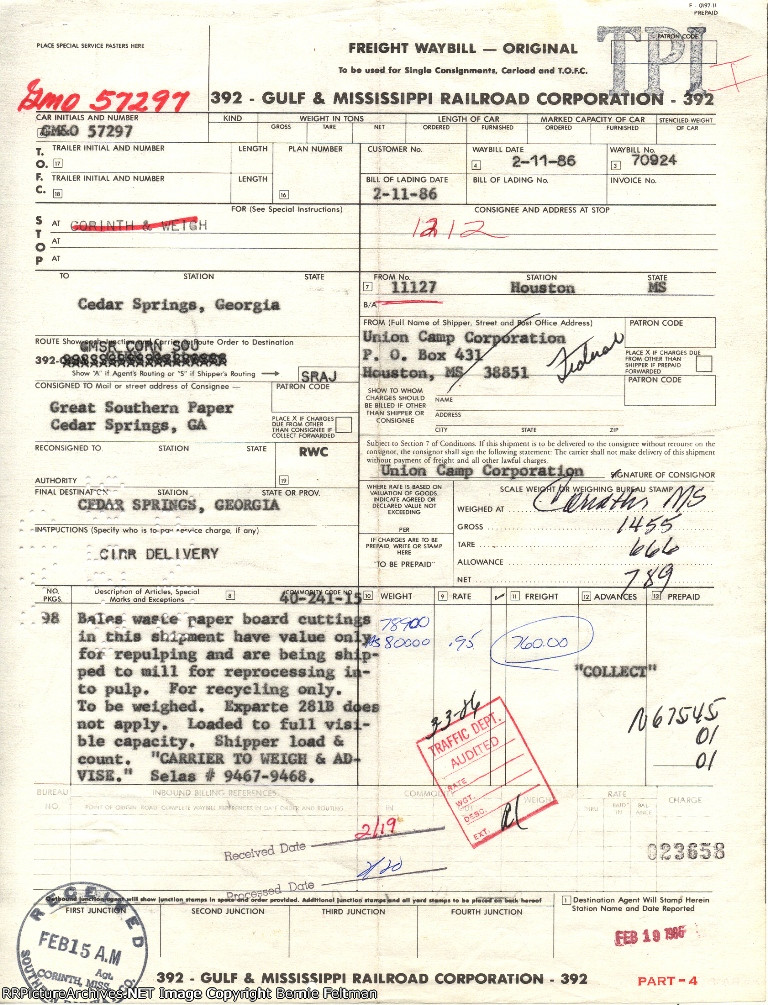 F - 0197 11
PREPAID
PLACE SPECIAL SERVICE PASTERS HERE
FREIGHT WAYBILL — ORIGINAL
TPI
PATRON CODE
To be used for Single Consignments, Carload and T.O.F.C.
GMO 57297
392 - GULF & MISSISSIPPI RAILROAD CORPORATION - 392
CAR INITIALS AND NUMBER
KIND
WEIGHT IN TONS
GROSS TARE NET
LENGTH OF CAR
ORDERED FURNISHED
MARKED CAPACITY OF CAR
ORDERED FURNISHED
STENCILED WEIGHT OF CAR
GM&O 57297
T.O.F.C.
TRAILER INITIAL AND NUMBER
LENGTH
PLAN NUMBER
CUSTOMER No.
WAYBILL DATE
WAYBILL No.
17
4 2-11-86
3 70924
TRAILER INITIAL AND NUMBER
LENGTH
16
BILL OF LADING DATE
BILL OF LADING No.
INVOICE No.
18
2-11-86
STOP
FOR (See Special Instructions)
CONSIGNEE AND ADDRESS AT STOP
AT CORINTH & WEIGH
1212
AT
AT
TO STATION STATE
FROM No. STATION STATE
7 11127 Houston MS
Cedar Springs, Georgia
B/A
FROM (Full Name of Shipper, Street and Post Office Address)
PATRON CODE
Union Camp Corporation
P. O. Box 431
Houston, MS 38851
Federal
PLACE X IF CHARGES DUE FROM OTHER THAN SHIPPER IF PREPAID FORWARDED
PATRON CODE
ROUTE Show each Junction and Carrier in Route Order to Destination
GMSR CORN SOU
392-
Show "A" if Agent's Routing or "S" if Shipper's Routing
SRAJ
CONSIGNED TO Mail or street address of Consignee —
PATRON CODE
Great Southern Paper
Cedar Springs, GA
PLACE X IF CHARGES DUE FROM OTHER THAN CONSIGNEE IF COLLECT FORWARDED
SHOW TO WHOM CHARGES SHOULD BE BILLED IF OTHER THAN SHIPPER OR CONSIGNEE
NAME
ADDRESS
CITY STATE ZIP
RECONSIGNED TO STATION STATE
RWC
Subject to Section 7 of Conditions. If this shipment is to be delivered to the consignee without recourse on the consignor, the consignor shall sign the following statement: The carrier shall not make delivery of this shipment without payment of freight and all other lawful charges.
Union Camp Corporation SIGNATURE OF CONSIGNOR
AUTHORITY
19
FINAL DESTINATION STATION STATE OR PROV.
CEDAR SPRINGS, GEORGIA
WHERE RATE IS BASED ON VALUATION OF GOODS INDICATE AGREED OR DECLARED VALUE NOT EXCEEDING
PER
SCALE WEIGHT OR WEIGHING BUREAU STAMP
WEIGHED AT
MS
GROSS 1455
TARE 666
ALLOWANCE
NET 789
INSTRUCTIONS (Specify who is to pay service charge, if any)
CIRR DELIVERY
IF CHARGES ARE TO BE PREPAID WRITE OR STAMP HERE
"TO BE PREPAID"
NO. PKGS.
Description of Articles, Special Marks and Exceptions
8 COMMODITY CODE NO.
40-241-15
10 WEIGHT
9 RATE
11 FREIGHT
12 ADVANCES
13 PREPAID
98 Bales waste paper board cuttings
in this shipment have value only
for repulping and are being ship-
ped to mill for reprocessing in-
to pulp. For recycling only.
To be weighed. Exparte 281B does
not apply. Loaded to full visi-
ble capacity. Shipper load &
count. "CARRIER TO WEIGH & AD-
VISE." Selas # 9467-9468.
78900
80000 .95 760.00
"COLLECT"
N67545
01
01
3-3-86
TRAFFIC DEPT.
AUDITED
RATE
WGT.
DESC.
EXT.
BUREAU NO.
INBOUND BILLING REFERENCES
POINT OF ORIGIN
WEIGHT
RATE
CHARGE
Received Date 2/19
Processed Date 2/20
023658
Outbound junction agent will show junction stamps in space and order provided. Additional junction stamps and all yard stamps to be placed on back hereof
FIRST JUNCTION
SECOND JUNCTION
THIRD JUNCTION
FOURTH JUNCTION
1 Destination Agent Will Stamp Herein Station Name and Date Reported
FEB 19 1986
RECEIVED
FEB 15 A.M
Agt.
CORINTH, MISS.
392 - GULF & MISSISSIPPI RAILROAD CORPORATION - 392
PART-4
RRPictureArchives.NET Image Copyright Bernie Feltman